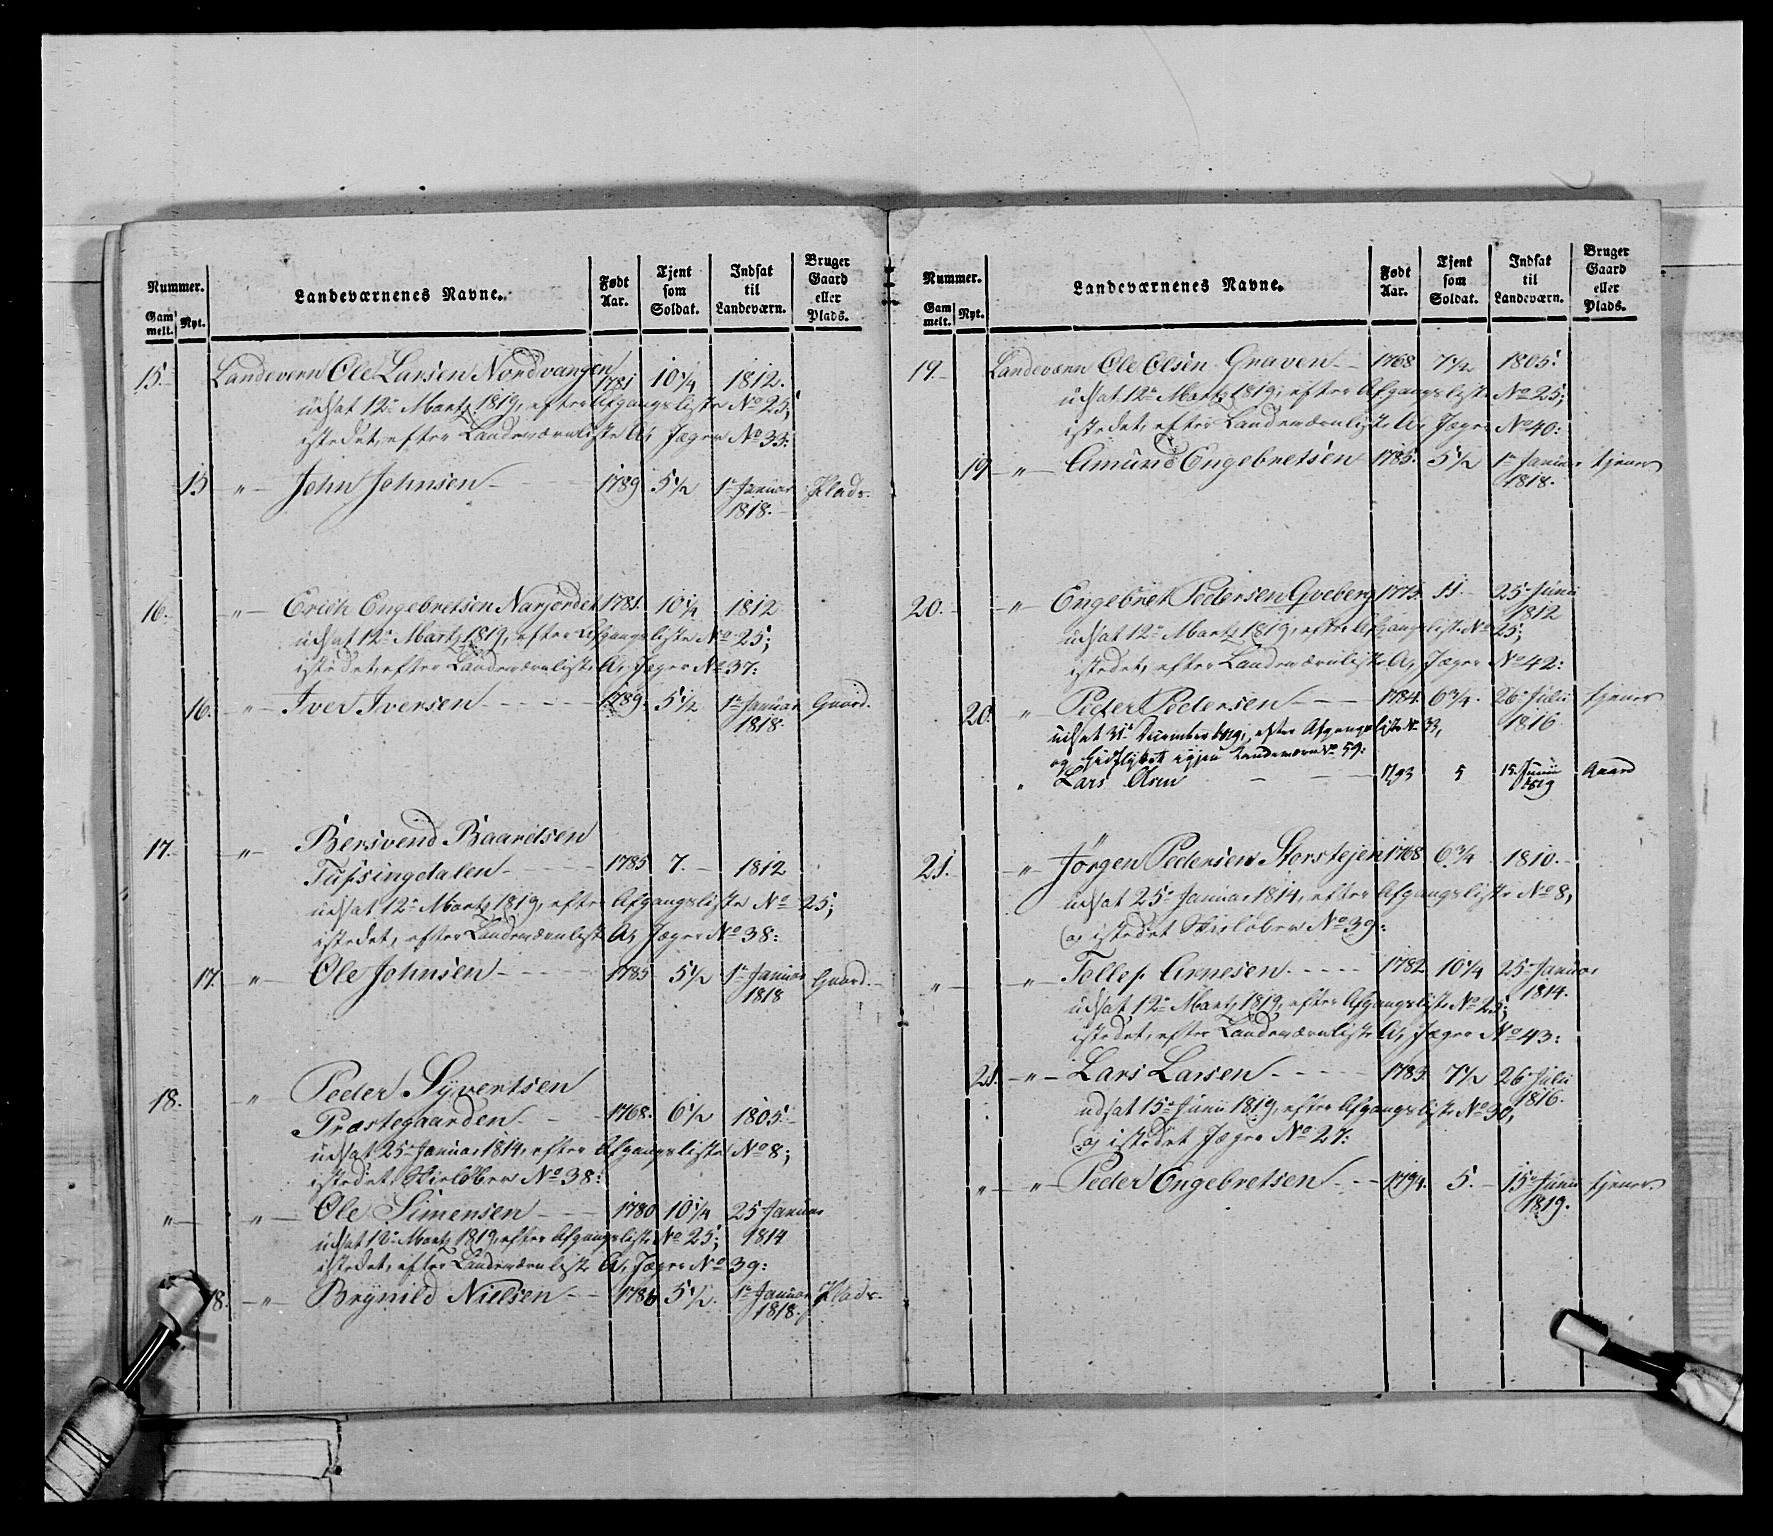 Nummer. Landeværnenes Navne. Født Aar. Tjent som Soldat. Indsat til Landeværn. Bruger Gaard eller Plads.
Gam melt. Nyt.
15. Landevern Ole Larsen Nordvangen 1781 10 1/4 1812.
udsat 12te Martz 1819, efter Afgangsliste No 25;
istedet, efter Landeværnliste A, Jæger No 33:
15 " John Johnsen 1789 5 1/2 1te Januar Plads.
1818.
16. " Erich Engebretsen Narjordet 1781. 10 1/4 1812
udsat 12te Martz 1819, efter Afgangsliste No 25;
istedet, efter Landeværnliste A, Jæger No 37:
16. " Iver Iversen 1789. 5 1/2 1te Januar Gaard.
1818.
17. " Bersvend Baardsen
Tufsingdalen 1785 7. 1812
udsat 12te Martz 1819, efter Afgangsliste No 25;
istedet, efter Landeværnliste A, Jæger No 38:
17. " Ole Johnsen 1785 5 1/2 1te Januar Gaard.
1818
18. " Peder Syvertsen
Præstegaarden 1768. 6 1/2 1805.
udsat 25de Januar 1814, efter Afgangsliste No 8;
istedet Skieløber No 38:
" " Ole Simensen 1780 10 1/4 25 Januar
udsat 12te Martz 1819, efter Afgangsliste No 25; 1814
istedet, efter Landeværnliste A, Jæger No 39:
18. " Brynild Nielsen 1786 5 1/2. 1te Januar Plads.
1818.
Nummer. Landeværnenes Navne. Født Aar. Tjent som Soldat. Indsat til Landeværn. Bruger Gaard eller Plads.
Gam melt. Nyt.
19. Landeværn Ole Olsen Graven 1768 7 1/2 1805.
udsat 12te Martz 1819, efter Afgangsliste No 25;
istedet, efter Landeværnliste A, Jæger No 40:
19 " Amund Engebretsen 1785. 5 1/2 1te Januar tjener
1818.
20. " Engebret Pedersen 1774. 11. 25de Junii
1812
udsat 12te Martz 1819, efter Afgangsliste No 25;
istedet, efter Landeværnliste A, Jæger No 42:
20. " Peder Pedersen 1784. 6 3/4. 26de Julii tjener
udsat 31te December 1819, efter Afgangsliste No 33, 1816
og hidflyttet igjen Landeværn No 59:
" Lars Olsen 1793 5 15 Junii Gaard
1819
21. " Jørgen Pedersen Storstejen 1768 6 3/4 1810.
udsat 25de Januar 1814, efter Afgangsliste No 8,
og istedet Skieløber No 39:
" " Tollef Arnesen 1782 10 1/4 25de Januar
1814.
udsat 12te Martz 1819, efter Afgangsliste No 25;
istedet, efter Landeværnliste A, Jæger No 43:
21. " Lars Larsen 1783. 7 1/2 26de Julii
1816.
udsat 15de Junii 1819, efter Afgangsliste No 30,
og istedet Jæger No 27:
" " Peder Engebretsen 1794. 5. 15de Junii tjener.
1819.